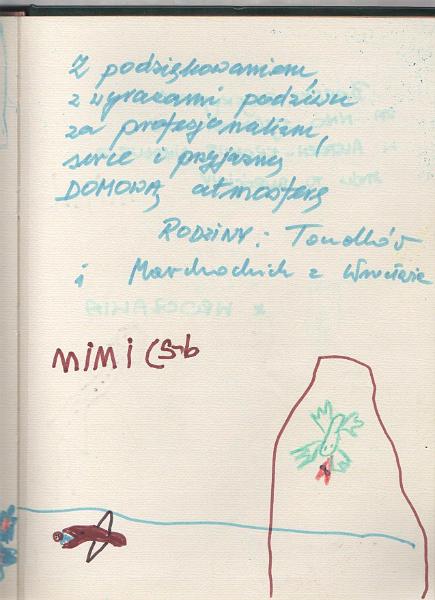 Z podziękowaniem,
z wyrazami podziwu
za profesjonalizm,
serce i przyjazną
DOMOWĄ atmosferę
RODZINY:
i z Wrocławia
MiMi (5-b